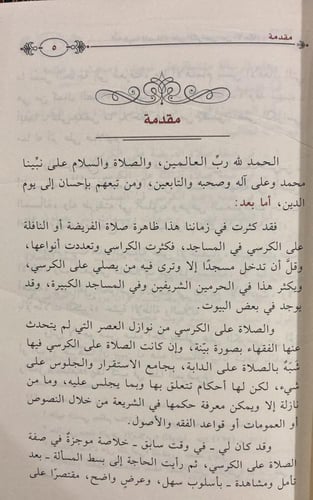 مقدمة
٥
مقدمة
الحمد لله ربِّ العالمين، والصلاة والسلام على نبِيِّنا
محمد وعلى آله وصحبه والتابعين، ومن تبعهم بإحسان إلى يوم
الدين، أما بعد:
فقد كثرت في زماننا هذا ظاهرة صلاة الفريضة أو النافلة
على الكرسي في المساجد، فكثرت الكراسي وتعددت أنواعها،
وقلَّ أن تدخل مسجدًا إلا وترى فيه من يصلي على الكرسي،
ويكثر هذا في الحرمين الشريفين وفي المساجد الكبيرة، وقد
يوجد في بعض البيوت.
والصلاة على الكرسي من نوازل العصر التي لم يتحدث
عنها الفقهاء بصورة بيّنة، وإن كانت الصلاة على الكرسي فيها
شَبَهٌ بالصلاة على الدابة، بجامع الاستقرار والجلوس على
شيء، لكن لها أحكام تتعلق بها وبما يجلس عليه، وما من
نازلة إلا ويمكن معرفة حكمها في الشريعة من خلال النصوص
أو العمومات أو قواعد الفقه والأصول.
وقد كان لي ـ في وقت سابق ـ خلاصة موجزةٌ في صفة
الصلاة على الكرسي، ثم رأيت الحاجة إلى بسط المسألة ـ بعد
تأمل ومشاهدة ـ بأسلوب سهل، وعرض واضح، مقتصرًا على